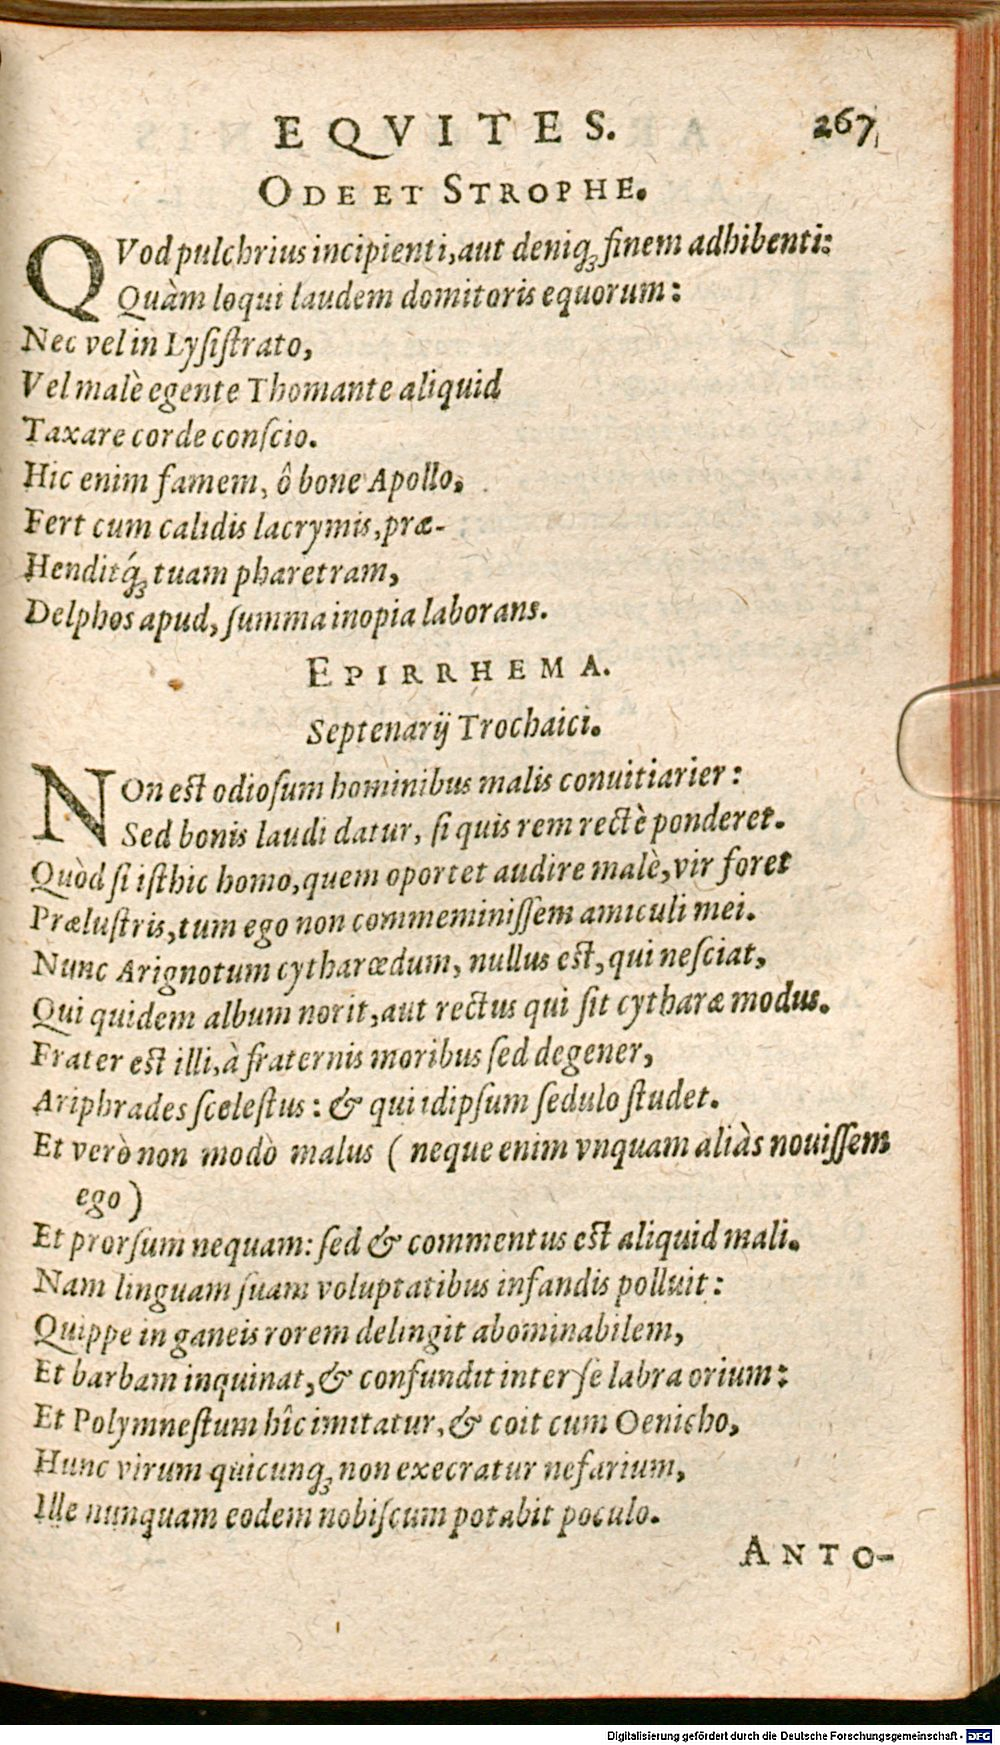 EQVITES. 267
ODE ET STROPHE.
QVod pulchrius incipienti, aut deniqꝫ finem adhibenti:
Quàm loqui laudem domitoris equorum:
Nec vel in Lysistrato,
Vel malè egente Thomante aliquid
Taxare corde conscio.
Hic enim famem, ô bone Apollo,
Fert cum calidis lacrymis, præ-
Henditq́ꝫ tuam pharetram,
Delphos apud, summa inopia laborans.
EPIRRHEMA.
Septenarij Trochaici.
NOn est odiosum hominibus malis conuitiarier:
Sed bonis laudi datur, si quis rem rectè ponderet.
Quòd si isthic homo, quem oportet audire malè, vir foret
Prælustris, tum ego non commeminissem amiculi mei.
Nunc Arignotum cytharœdum, nullus est, qui nesciat,
Qui quidem album norit, aut rectus qui sit cytharæ modus.
Frater est illi, à fraternis moribus sed degener,
Ariphrades scelestus: & qui idipsum sedulò studet.
Et verò non modò malus ( neque enim vnquam aliàs nouissem
ego)
Et prorsum nequam: sed & commentus est aliquid mali.
Nam linguam suam voluptatibus infandis polluit:
Quippe in ganeis rorem delingit abominabilem,
Et barbam inquinat, & confundit inter se labra orium:
Et Polymnestum hîc imitatur, & coit cum Oenicho,
Hunc virum quicunqꝫ non execratur nefarium,
Ille nunquam eodem nobiscum potabit poculo.
ANTO-
Digitalisierung gefördert durch die Deutsche Forschungsgemeinschaft - DFG